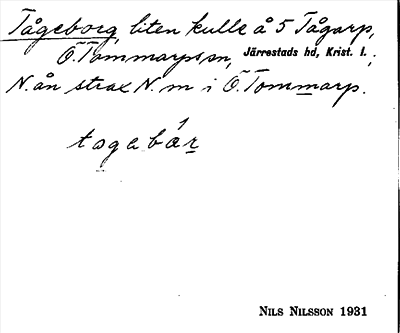 Tågeborg, liten kulle å 5 Tågarp,
Ö. Tommarps sn, Järrestads hd, Krist. l.;
N. ån strax N. m i Ö. Tommarp.
togabǽr
NILS NILSSON 1931